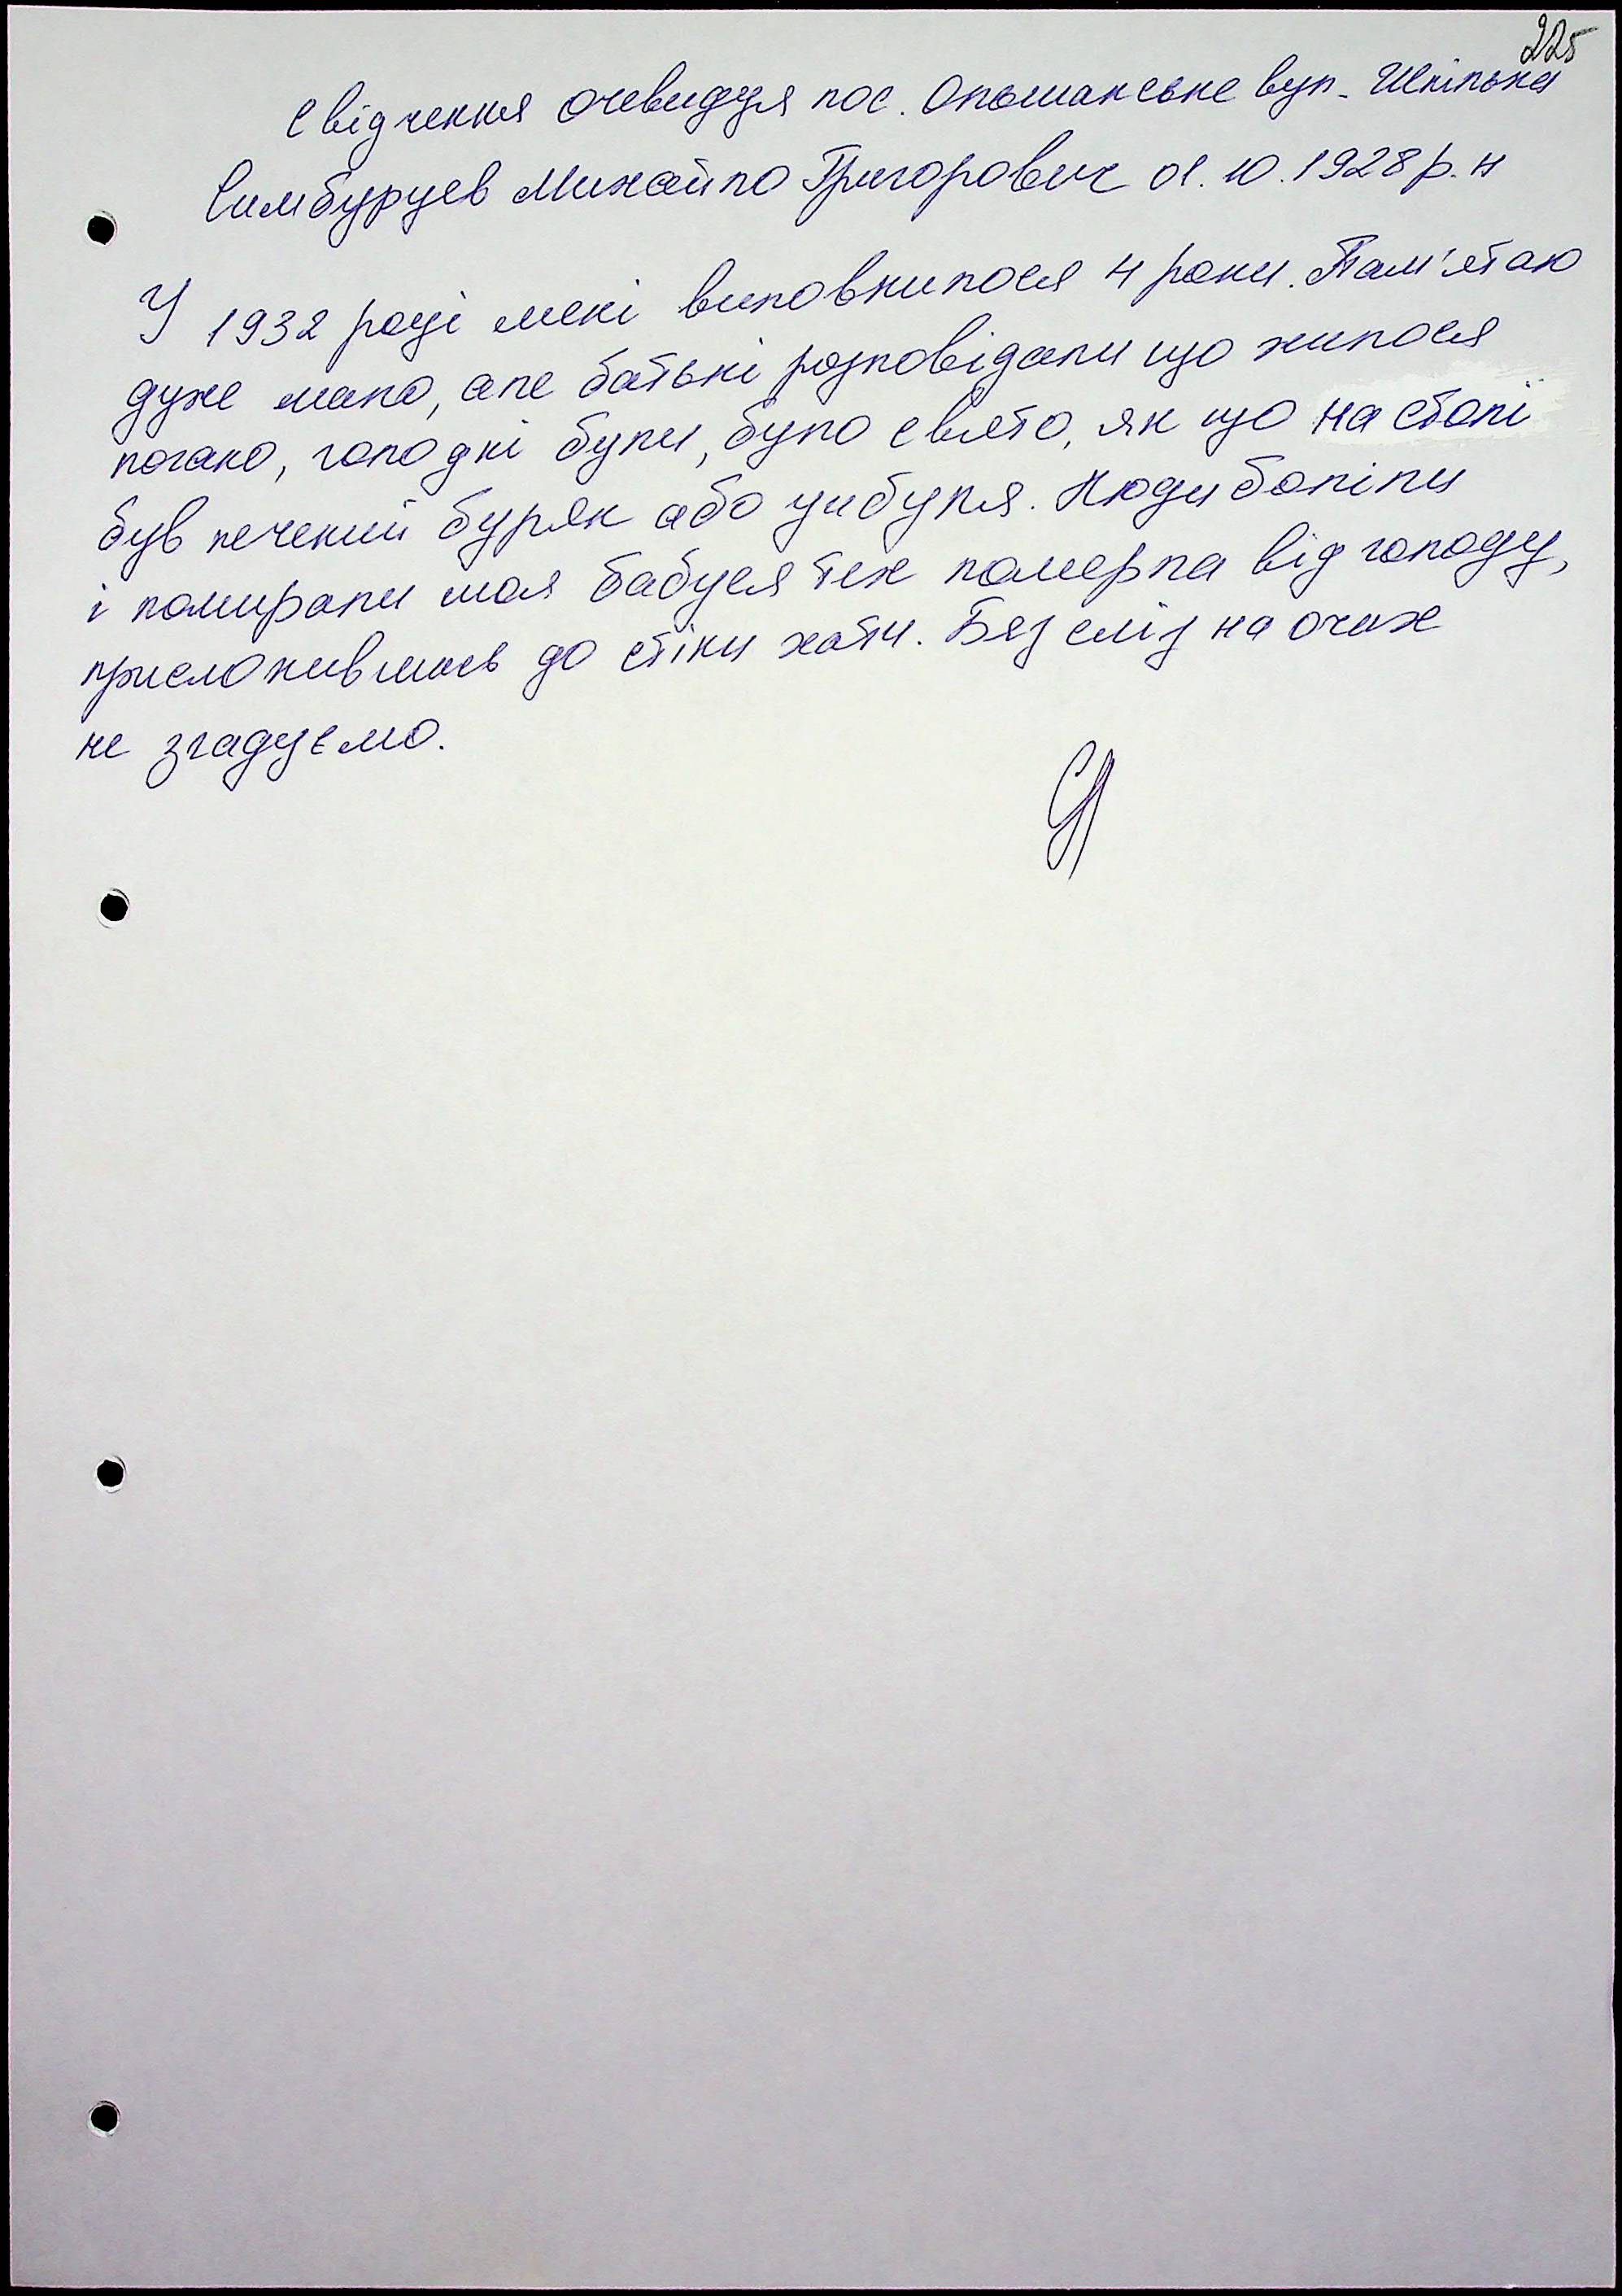 225
Свідчення очевидця пос. Опьшанське вул. Шкільна
Симбурцев Михайло Григорович 01.10.1928р.н
У 1932 році мені виповнилося 4 роки. Пам'ятаю
дуже мало, але батькі розповідали що жилося
погано, голодні були, було свято, як що на столі
був печений буряк або цибуля. Люди боліли
і помирали моя бабуся теж померла від голоду,
прислонившись до стіни хати. Бяз сліз на очах
не згадуємо.